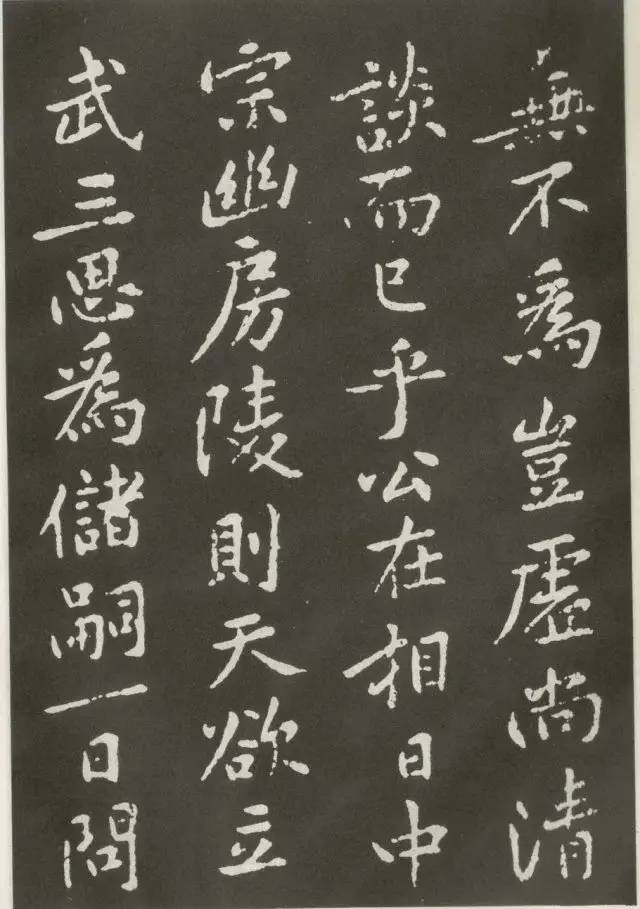 無不為豈虛尚清
談而已乎公在相日中
宗幽房陵則天欲立
武三思為儲嗣一日問